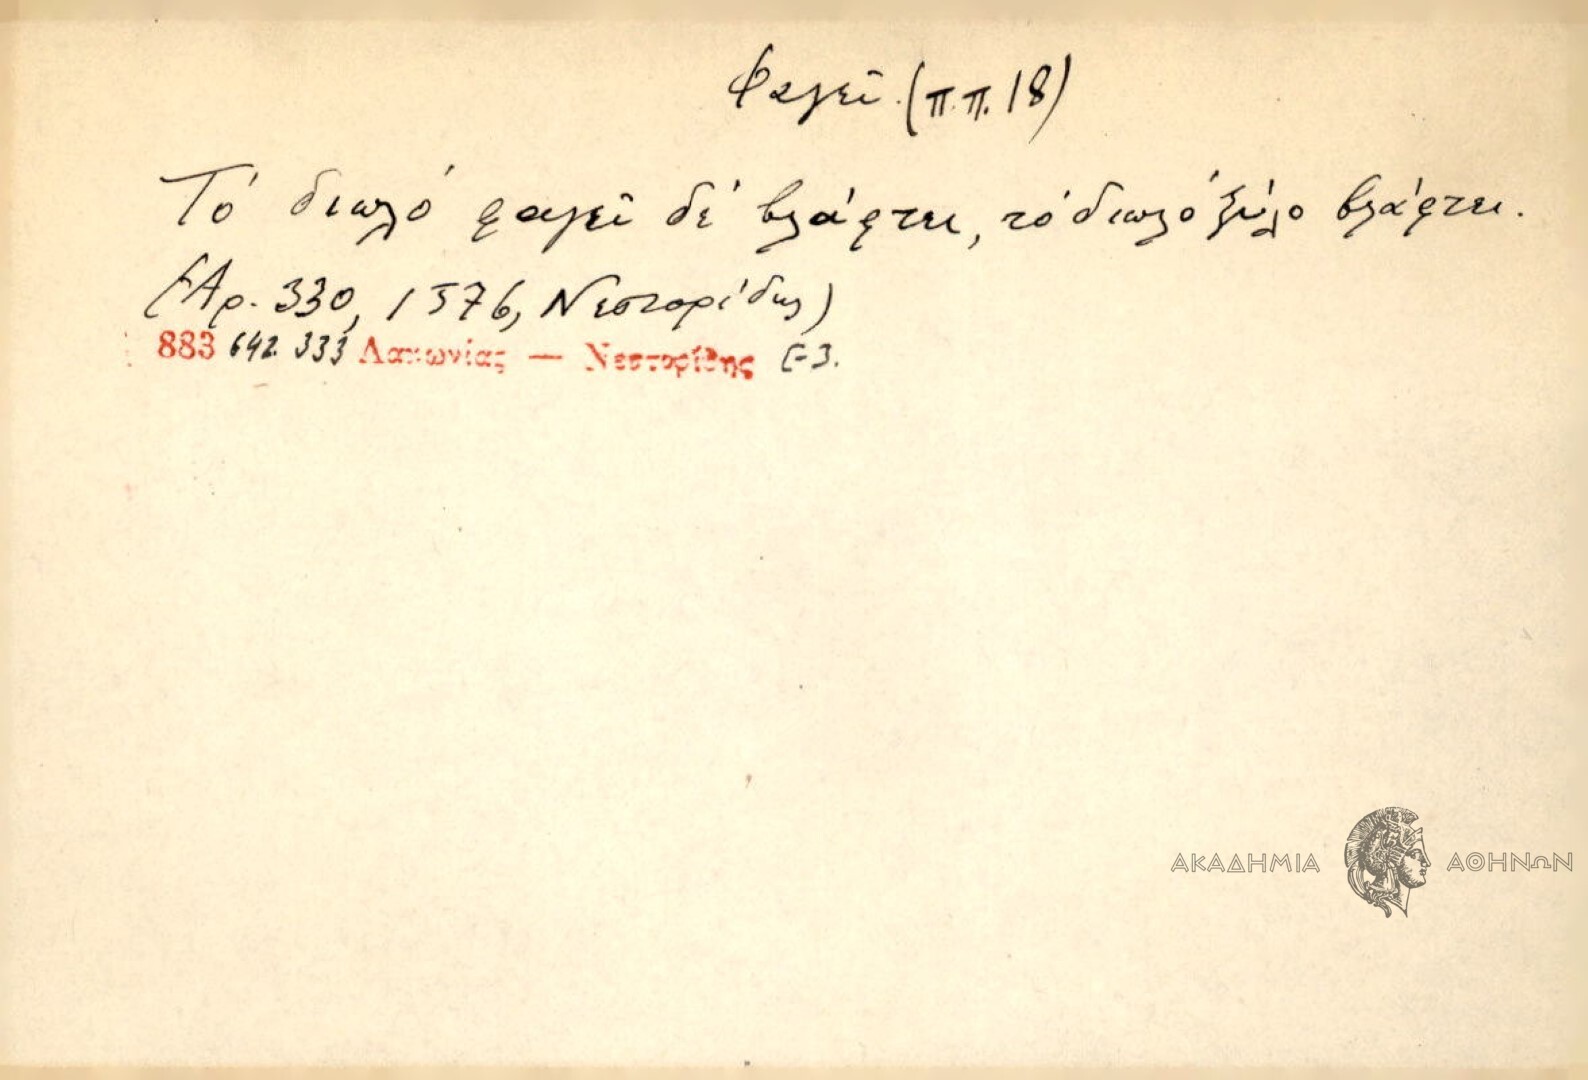 Φαγεῖ (π.π. 18)
Τό διπλό φαγεῖ δέ βλάφτει, τό διπλό ξύλο βλάφτει.
(Ἀρ. 330, 1576, Νεστορίδης)
883 642. 333 Λακωνίας — Νεστορίδης Σ 3.
ΑΚΑΔΗΜΙΑ ΑΘΗΝΩΝ